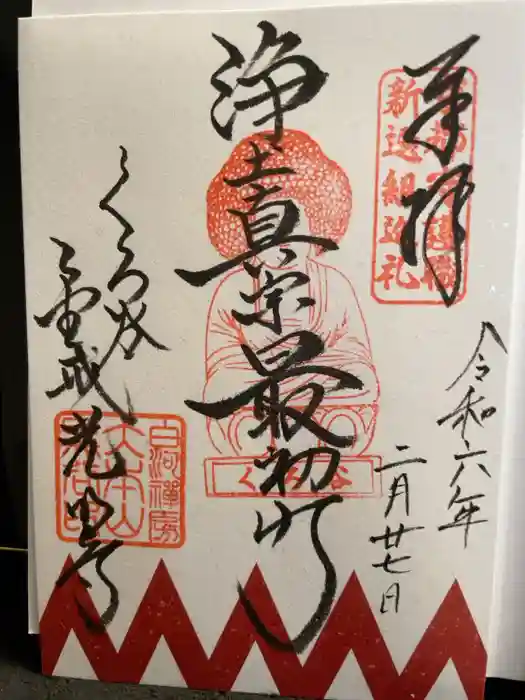 奉拝
新選組巡礼
令和六年
二月廿七日
浄土真宗最初門
くろ谷
くろ谷
金戒光明寺
白河禅房